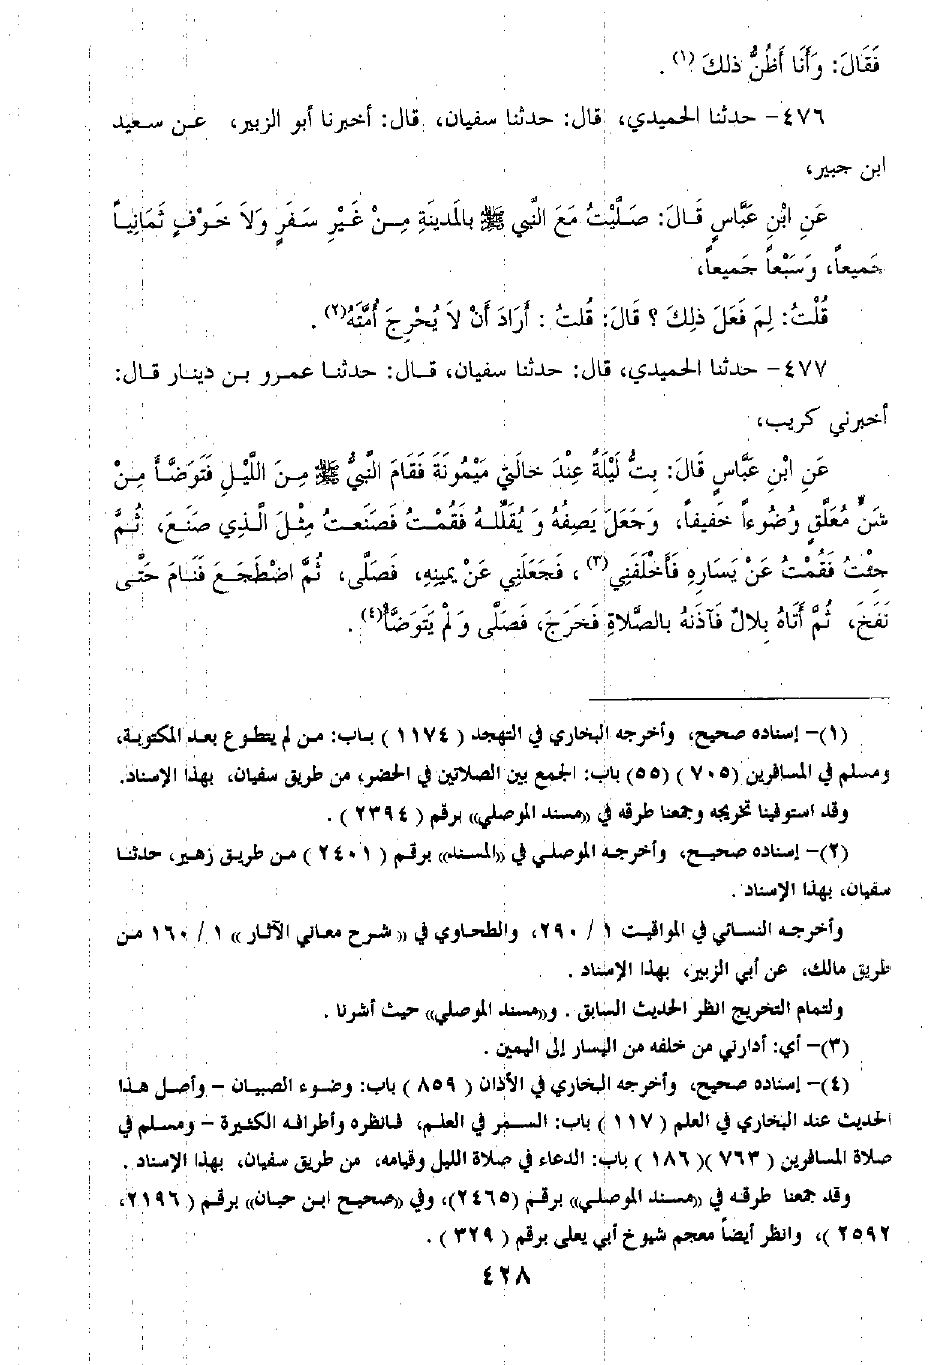 فَقَالَ: وَأَنَا أَظُنُّ ذلكَ (١) .
٤٧٦- حدثنا الحميدي، قال: حدثنا سفيان، قال: أخبرنا أبو الزبير، عن سعيد
ابن جبير،
عَنِ ابْنِ عَبَّاسٍ قَالَ: صَلَّيْتُ مَعَ النَّبي ﷺ بالمَدينَةِ مِنْ غَيْرِ سَفَرٍ وَلاَ خَوْفٍ ثَمَانِياً
جَميعاً، وَسَبْعاً جَميعاً،
قُلْتُ: لِمَ فَعَلَ ذلِكَ ؟ قَالَ: قُلتُ : أَرَادَ أَنْ لاَ يُحْرِجَ أُمَّتَهُ(٢) .
٤٧٧- حدثنا الحميدي، قال: حدثنا سفيان، قال: حدثنا عمرو بن دينار قال:
أخبرني كريب،
عَنِ ابْنِ عَبَّاسٍ قَالَ: بِتُّ لَيْلَةً عِنْدَ خالَتي مَيْمُونَةَ فَقَامَ النَّبيُّ ﷺ مِنَ اللَّيْلِ فَتَوَضَّأَ مِنْ
شَنٍّ مُعَلَّقٍ وُضُوءاً خَفيفاً، وَجَعَلَ يَصِفُهُ وَيُقَلِّلُهُ فَقُمْتُ فَصَنَعتُ مِثْلَ الَّذِي صَنَعَ، ثُمَّ
جِئْتُ فَقُمْتُ عَنْ يَسَارِهِ فَأَخْلَفَنِي(٣) ، فَجَعَلَنِي عَنْ يمينِهِ، فَصَلَّى، ثُمَّ اضْطَجَعَ فَنَامَ حَتَّى
نَفَخَ، ثُمَّ أَتَاهُ بِلالٌ فَآذَنَهُ بالصَّلاةِ فَخَرَجَ، فَصَلَّى وَلَمْ يَتَوَضَّأْ(٤) .
(١)- إسناده صحيح، وأخرجه البخاري في التهجد ( ١١٧٤ ) باب: من لم يتطوع بعد المكتوبة،
ومسلم في المسافرين (٧٠٥ ) (٥٥) باب: الجمع بين الصلاتين في الحضر، من طريق سفيان، بهذا الإسناد.
وقد استوفينا تخريجه وجمعنا طرقه في «مسند الموصلي» برقم ( ٢٣٩٤ ) .
(٢)- إسناده صحيح، وأخرجه الموصلي في «المسند» برقم ( ٢٤٠١ ) من طريق زهير، حدثنا
سفيان، بهذا الإسناد .
وأخرجه النسائي في المواقيت ١ / ٢٩٠، والطحاوي في « شرح معاني الآثار » ١ / ١٦٠ من
طريق مالك، عن أبي الزبير، بهذا الإسناد .
ولتمام التخريج انظر الحديث السابق . و«مسند الموصلي» حيث أشرنا .
(٣)- أي: أدارني من خلفه من اليسار إلى اليمين .
(٤)- إسناده صحيح، وأخرجه البخاري في الأذان ( ٨٥٩ ) باب: وضوء الصبيان – وأصل هذا
الحديث عند البخاري في العلم ( ١١٧ ) باب: السمر في العلم، فانظره وأطرافه الكثيرة – ومسلم في
صلاة المسافرين ( ٧٦٣ )( ١٨٦ ) باب: الدعاء في صلاة الليل وقيامه، من طريق سفيان، بهذا الإسناد .
وقد جمعنا طرقه في «مسند الموصلي» برقم (٢٤٦٥)، وفي «صحيح ابن حبان» برقم ( ٢١٩٦ ،
٢٥٩٢ )، وانظر أيضاً معجم شيوخ أبي يعلى برقم ( ٣٢٩ ) .
٤٢٨